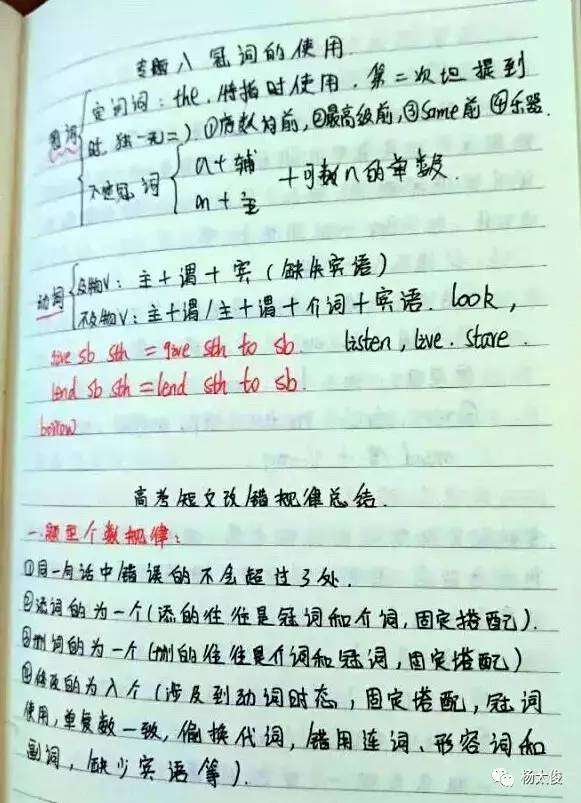 专题八 冠词的使用.
冠词
定冠词: the. 特指时使用. 第二次提到
时. 独一无二) ①序数词前, ②最高级前, ③Same前 ④乐器.
不定冠词
a + 辅
an + 主
+可数n的单数.
动词
及物V: 主+谓+宾 (缺失宾语)
不及物V: 主+谓/主+谓+介词+宾语. look,
give sb sth = give sth to sb. listen, live. stare.
lend sb sth = lend sth to sb.
borrow
高考短文改错规律总结.
一.题型个数规律:
①同一句话中错误的不会超过3处.
②添词的为一个(添的往往是冠词和介词,固定搭配).
③删词的为一个(删的往往是介词和冠词,固定搭配)
④修改的为八个(涉及到动词时态,固定搭配,冠词
使用,单复数一致,偷换代词,错用连词、形容词和
副词,缺少宾语等).
杨太俊